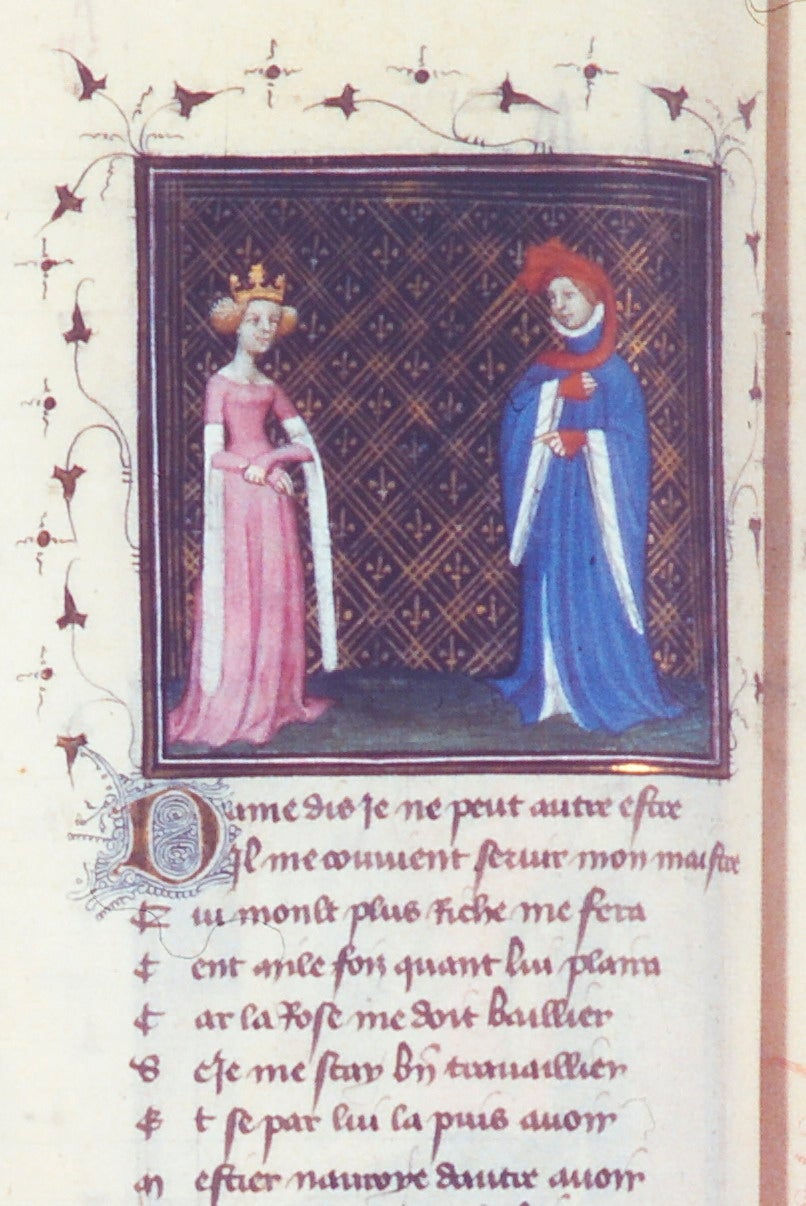 Dame dis Je ne peut autre estre
Il me convient servir mon maistre
Qui moult plus Riche me fera
Cent mile fois quant lui plaira
Car la Rose me doit baillier
Se Je me scay bn̄ travaillier
Et se par lui la puis avoir
Mestier nauroye dautre avoir